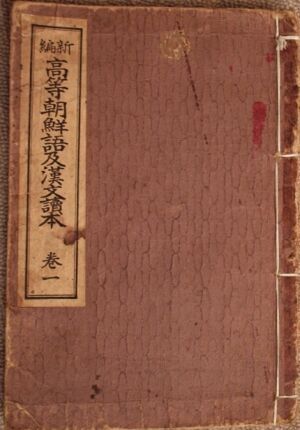 新編
高等朝鮮語及漢文讀本
卷一